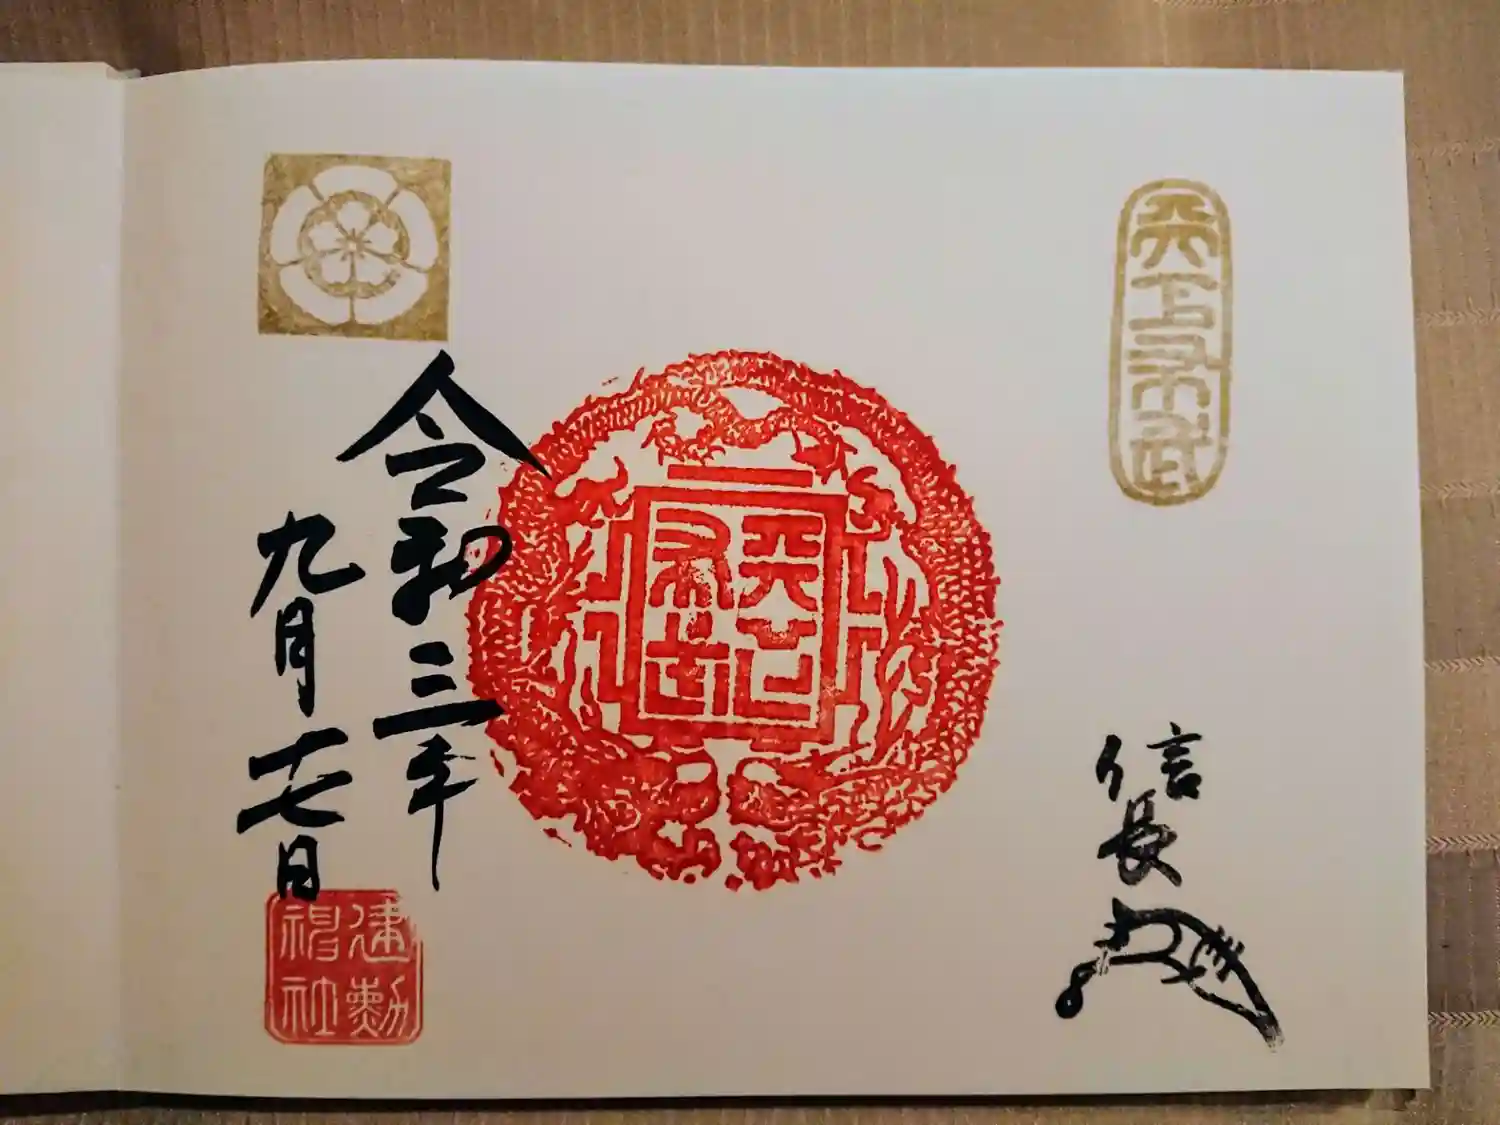 天下布武
信長
天下布武
令和三年
九月十七日
建勲神社